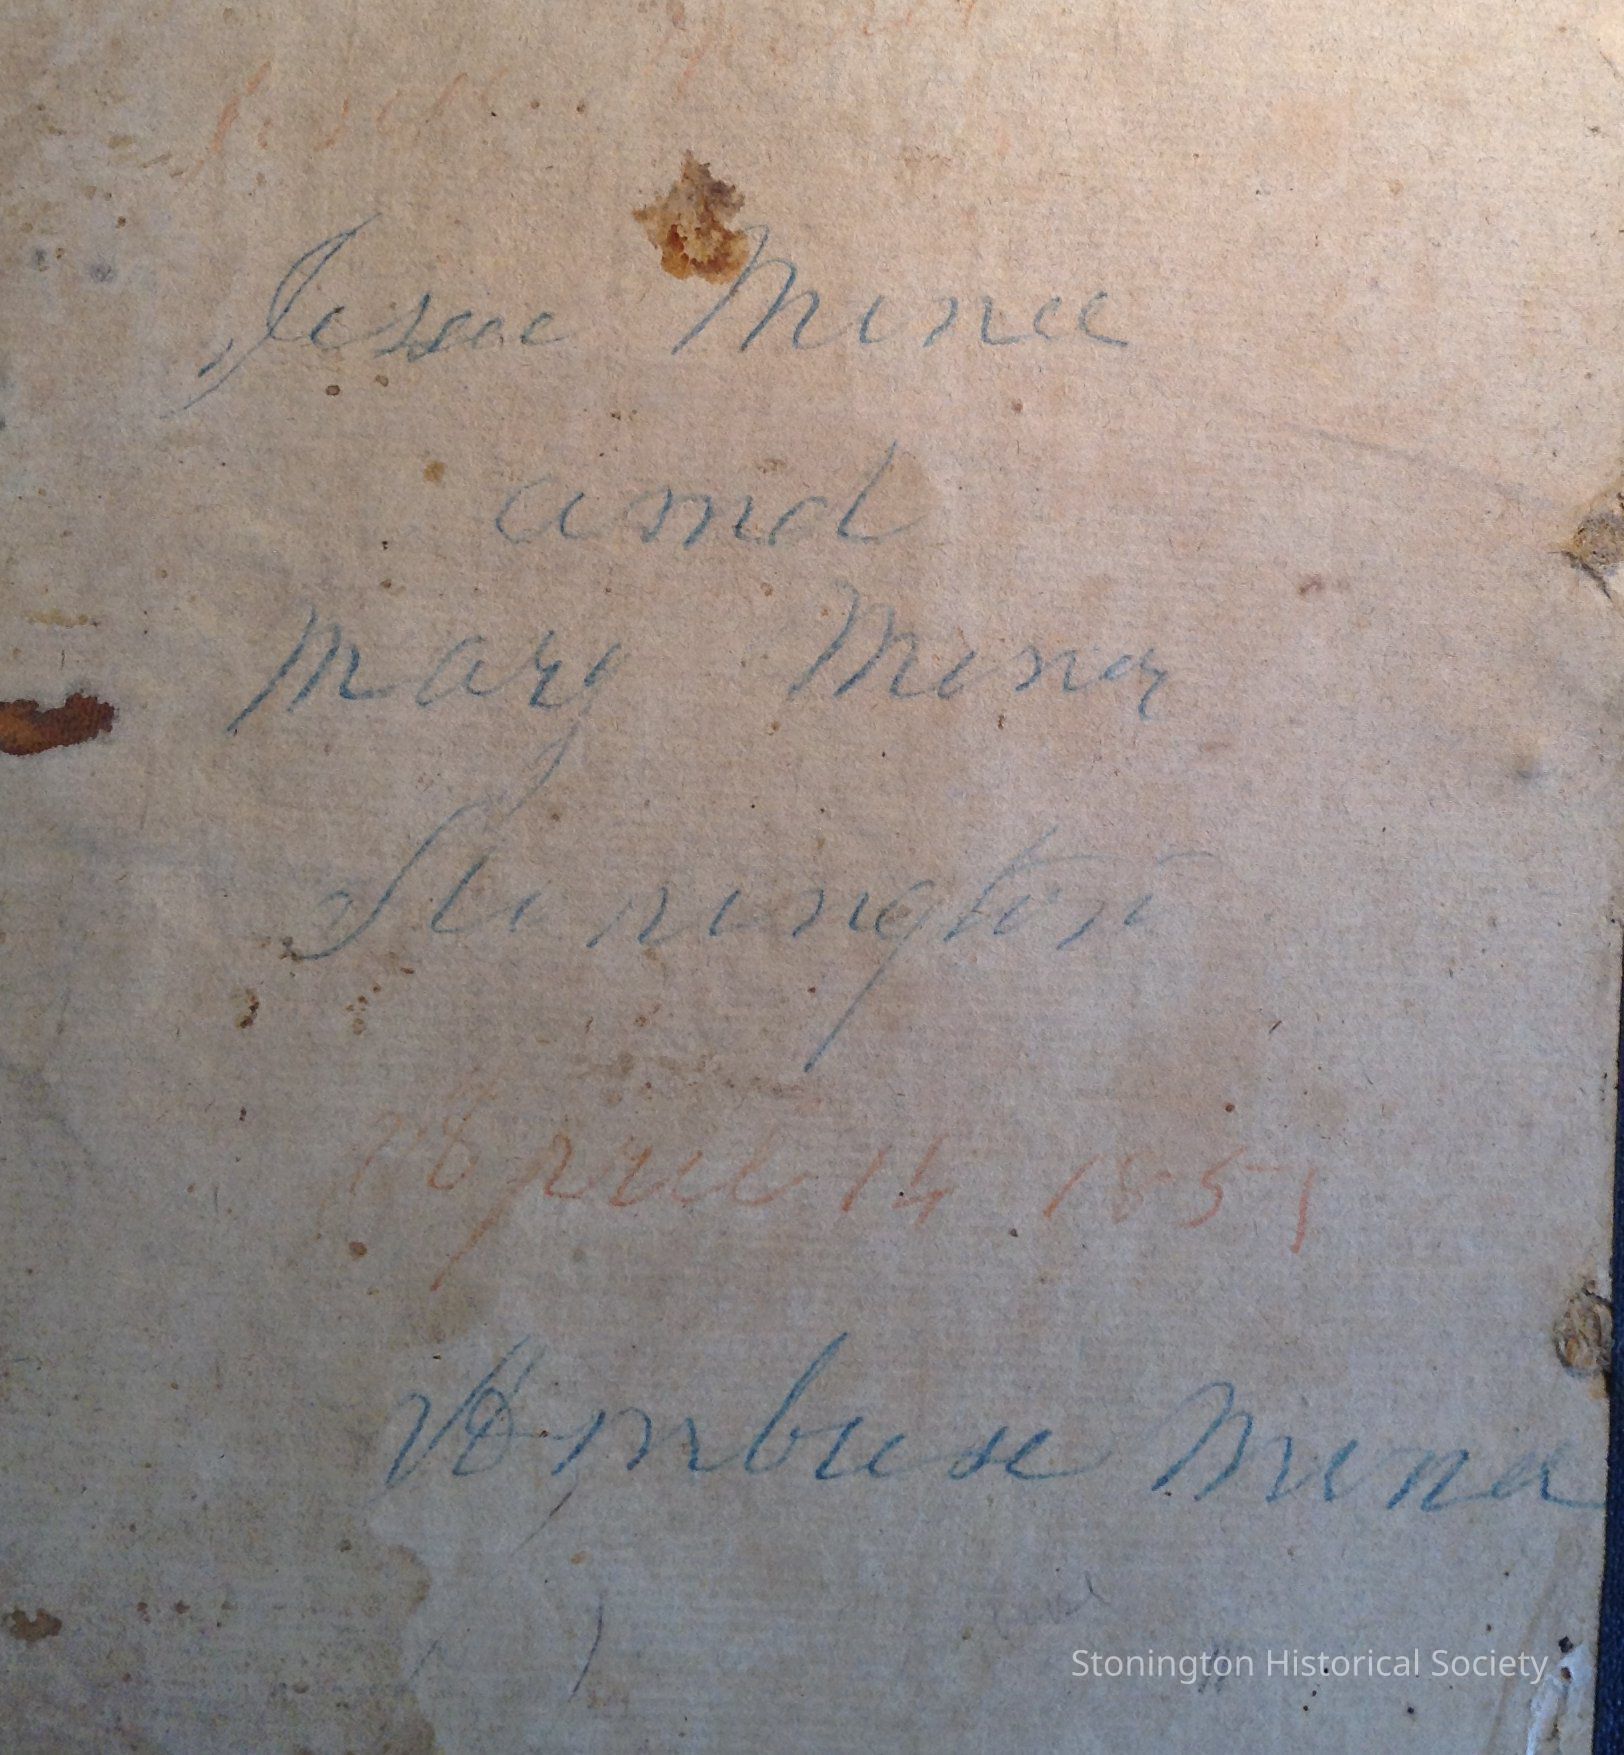 Jesse Miner
and
Mary Miner
Stonington
April 14 1851
Ambrose Miner
Stonington Historical Society